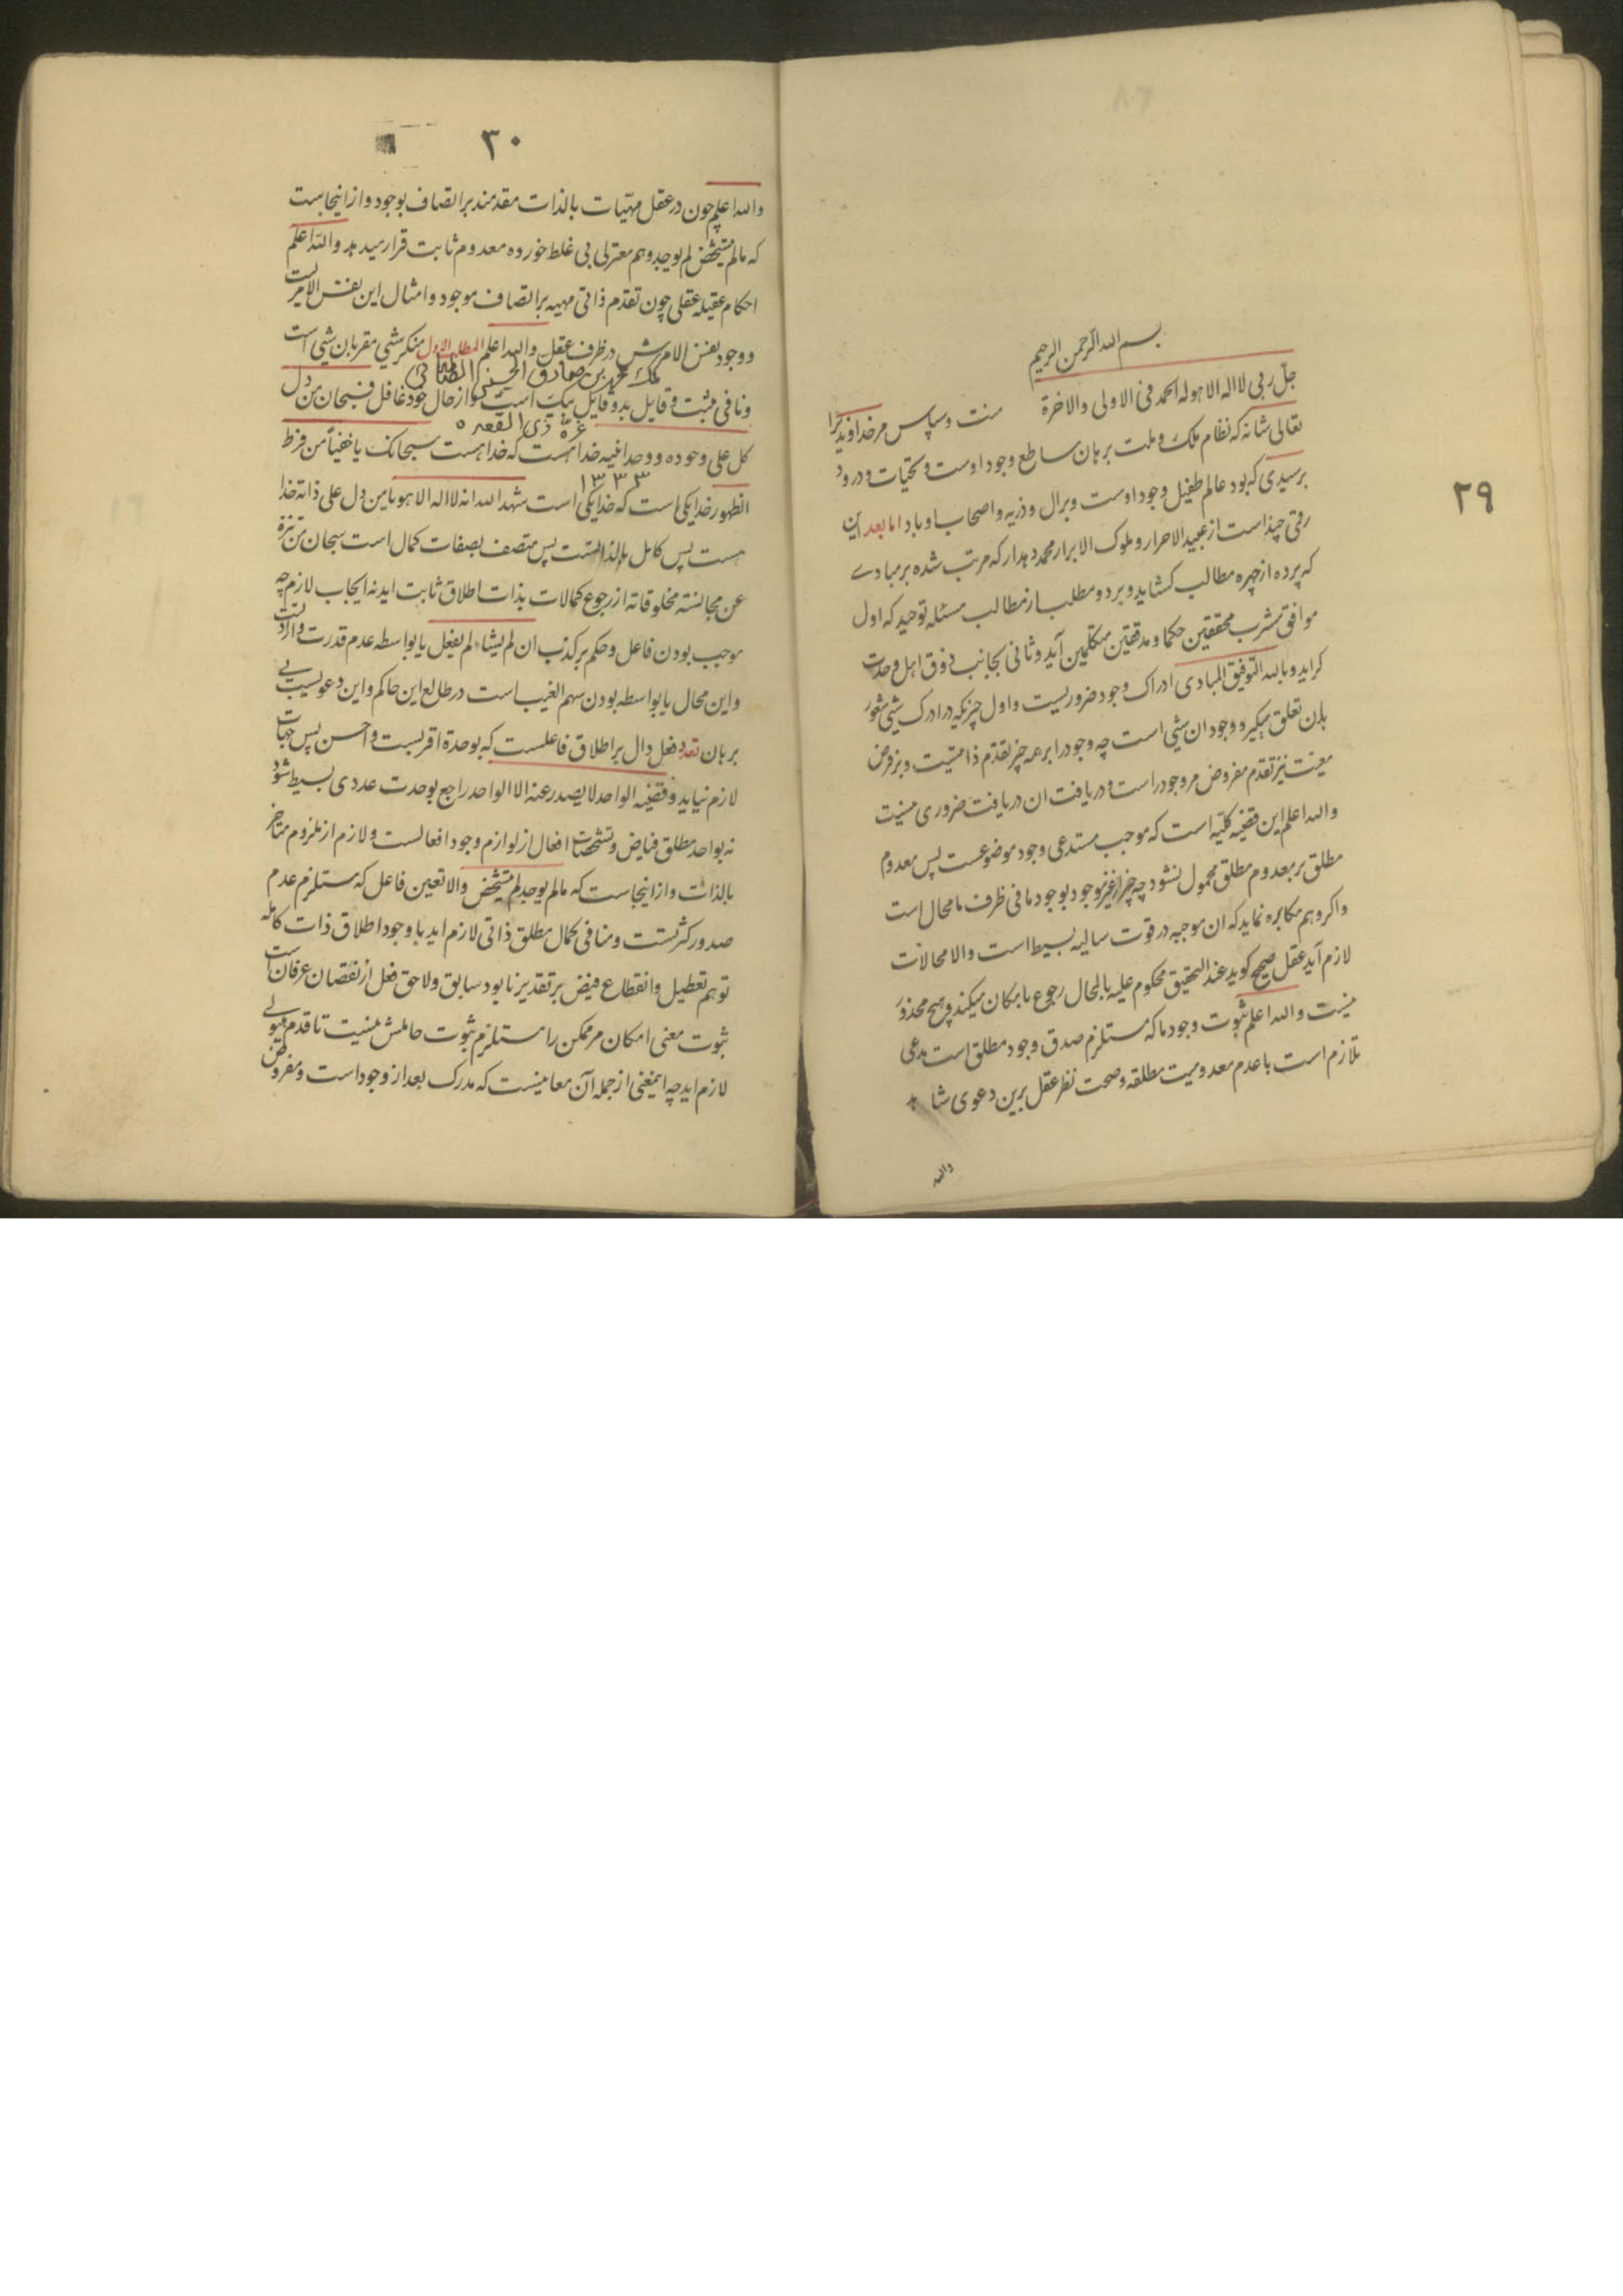 ٢٩
بسم الله الرحمن الرحیم
جل ربی لا اله الا هو له الحمد فی الاولی والاخرة منت و سپاس مر خداوند را
تعالی شانه که نظام ملک و ملت برهان ساطع وجود اوست و تحیات و درود
بر سیدی که بود عالم طفیل وجود اوست و بر ال و ذریه و اصحاب او باد اما بعد این
رقی چند است از عبید الاحرار و ملوک الابرار محمد دهدار که مرتب شده بر مبادے
که پرده از چهره مطالب کشاید و بر دو مطلب از مطالب مسئله توحید که اول
موافق مشرب محققین حکما و مدققین متکلمین آید و ثانی بجانب ذوق اهل وحدت
کراید و بالله التوفیق المبادی ادراک وجود ضروریست و اول چیزیکه در ادرک شی شعور
بان تعلق میگیرد وجود ان شی است چه وجود را بر همه چیز تقدم ذاتیست و بر فرض
معیت نیز تقدم مفروض مر وجود راست و دریافت ان دریافت ضروری نیست
والله اعلم این قضیه کلیه است که موجب مستدعی وجود موضوعست پس معدوم
مطلق بر معدوم مطلق محمول نشود چه چیز از غیر موجود بوجود ما فی ظرف ما محال است
واکر وهم مکابره نماید که ان موجبه در قوت سالبه بسیط است والا محالات
لازم آید عقل صحیح کوید عند التحقیق محکوم علیه بالمحال رجوع بامکان میکند و هیچ محذور
نیست والله اعلم ثبوت وجود ما که مستلزم صدق وجود مطلق است مدعی
تلازم است با عدم معدومیت مطلقه و صحت نظر عقل برین دعوی شاهد
والله
٣٠
والله اعلم چون در عقل مهیات بالذات مقدمند بر اتصاف بوجود و از اینجاست
که مالم یتشخص لم یوجد وهم معتزلی پی غلط خورده معدوم ثابت قرار میدهد والله اعلم
احکام عقلیه عقلی چون تقدم ذاتی مهیه بر اتصاف موجود و امثال این نفس الامریست
و وجود نفس الامریش در ظرف عقل والله اعلم المطلب الاول منکر شی مقر بان شی است
ملک محمد بن صادق الحسینی الطباطبائی
و نافی مثبت و قایل بدو قایل بیک است کو از حال خود غافل فسبحان من دل
غرّهٔ ذی القعده
کل علی وجوده و وحدانیه خدا هست که خدا هست سبحانک یا خفیاً من فرط
١٣٣٣
الظهور خدا یکی است که خدا یکی است شهد الله انه لا اله الا هو یا من دل علی ذاته خدا
هست پس کامل بالذاتست پس متصف بصفات کمال است سبحان من تنزه
عن مجانسة مخلوقاته از رجوع کمالات بذات اطلاق ثابت اید نه ایجاب لازم چه
موجب بودن فاعل و حکم بر کذب ان لم یشاء لم یفعل یا بواسطه عدم قدرت و ارادتست
و این محال یا بواسطه بودن سهم الغیب است در طالع این حاکم و این دعویست بے
برهان تعدد فعل دال بر اطلاق فاعلست که بوحدة اقربست و احسن پس جهات
لازم نیاید و قضیه الواحد لا یصدر عنه الا الواحد راجع بوحدت عددی بسیط شود
نه بواحد مطلق فیاض و تشخصات افعال از لوازم وجود افعالست و لازم از ملزوم متاخر
بالذات و از اینجاست که مالم یوجد لم یتشخص والا تعین فاعل که مستلزم عدم
صدور کثرتست و منافی کمال مطلق ذاتی لازم اید با وجود اطلاق ذات کامله
توهم تعطیل و انقطاع فیض بر تقدیر نابود سابق و لاحق فعل از نقصان عرفان است
ثبوت معنی امکان مر ممکن را مستلزم ثبوت حاملش نیست تا قدم هیولے
لازم اید چه اینمعنی از جمله آن معانیست که مدرک بعد از وجود است و مفروض